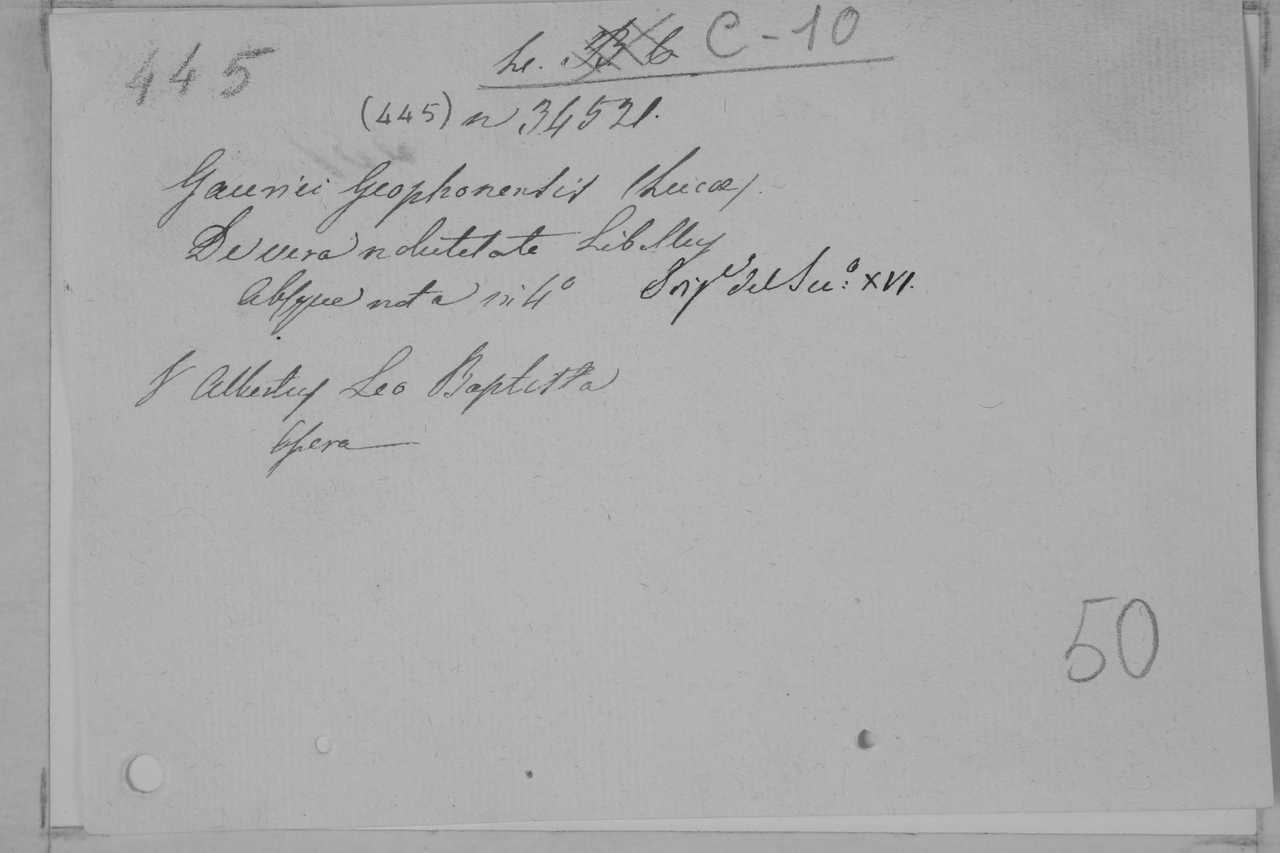 445
C-10
(445) n 34521.
Gaurici Geophonensis (Lucae).
De vera nobilitate Libellus
Absque nota in 4º del XVI.
V Albertus Leo Baptista
Opera
50